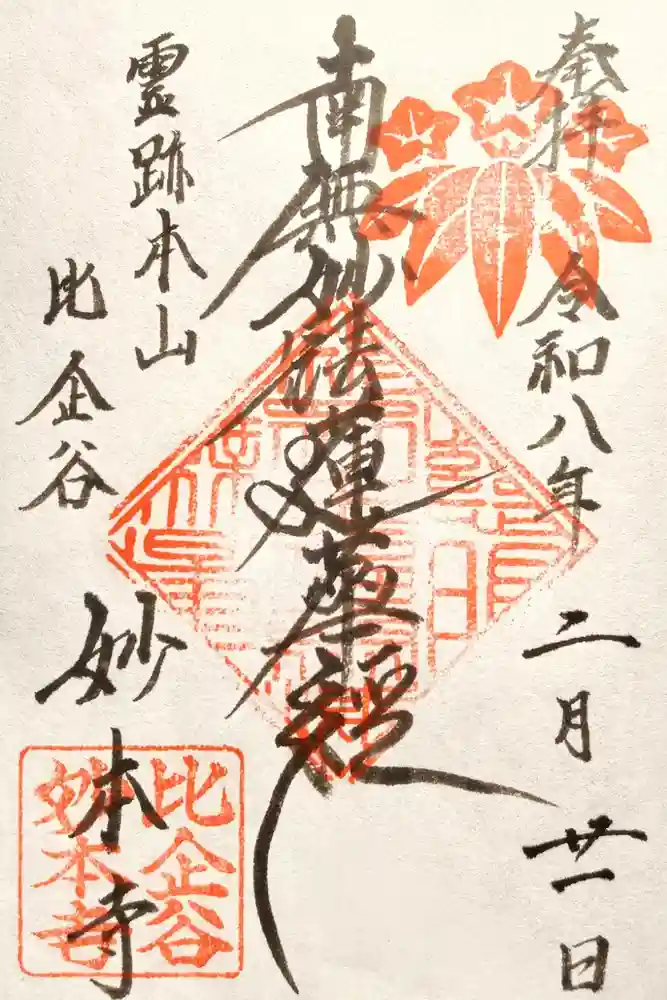 奉拝
令和八年
二月
廿一日
南無妙法蓮華経
霊跡本山
比企谷
妙本寺
比企谷
妙本寺